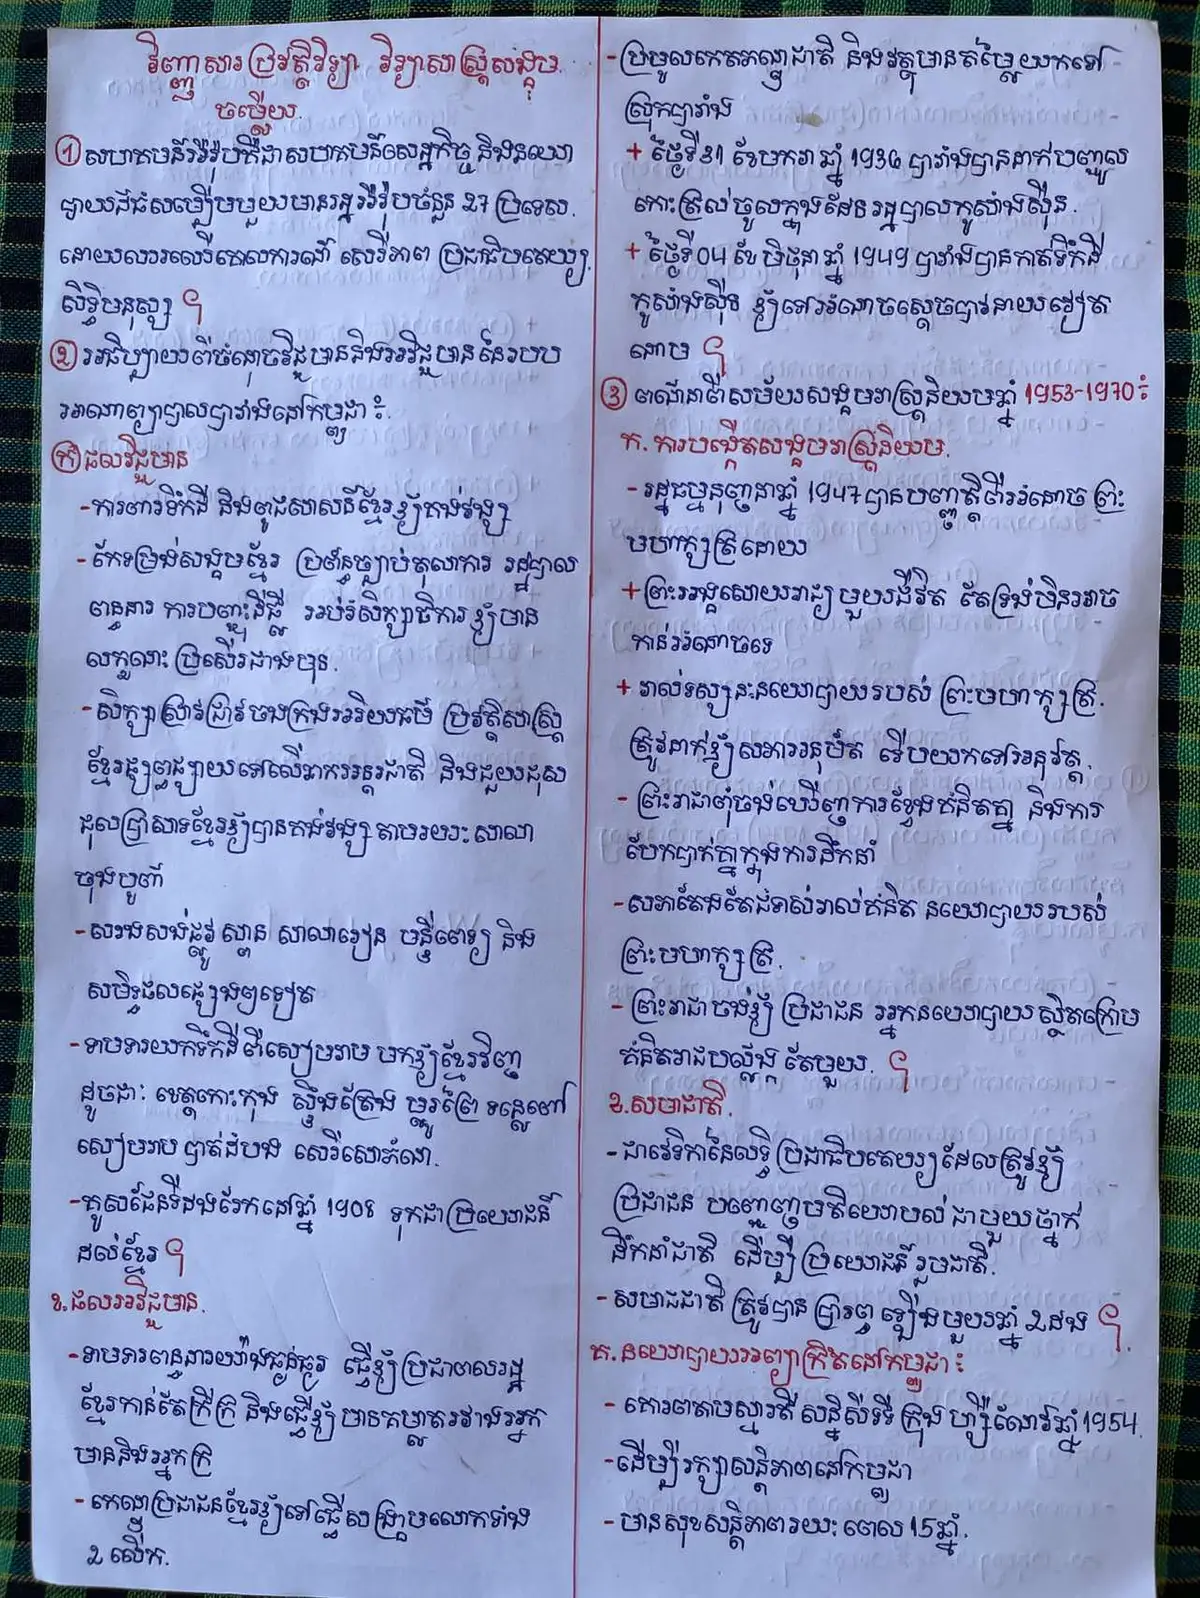 វិញ្ញាសារប្រវត្តិវិទ្យា វិទ្យាសាស្ត្រសង្គម
ចម្លើយ.
① សហគមន៍អឺរ៉ុបគឺជាសហគមន៍សេដ្ឋកិច្ច និងនយោ
បាយដ៏ធំសម្បើមមួយមានរដ្ឋអឺរ៉ុបចំនួន 27 ប្រទេស.
ដោយឈរលើគោលការណ៍ សេរីភាព ប្រជាធិបតេយ្យ.
សិទ្ធិមនុស្ស ។
② អធិប្បាយពីចំណុចវិជ្ជមាននិងអវិជ្ជមាននៃរបប
អាណាព្យាបាលបារាំងនៅកម្ពុជា ៖
ក ផលវិជ្ជមាន
- ការពារទឹកដី និងពូជសាសន៍ខ្មែរឲ្យគង់វង្ស
- កែទម្រង់សង្គមខ្មែរ ប្រព័ន្ធច្បាប់តុលាការ រដ្ឋបាល
ពន្ធដារ ការបញ្ចុះដីធ្លី អប់រំសិក្សាធិការឲ្យមាន
លក្ខណះប្រសើរជាងមុន.
- សិក្សាស្រាវជ្រាវចងក្រងអរិយធម៌ ប្រវត្តិសាស្ត្រ
ខ្មែរផ្សព្វផ្សាយទៅលើឆាកអន្តរជាតិ និងជួយជុស
ជុលប្រាសាទខ្មែរឲ្យបានគង់វង្សតាមរយះសាលា
ចុងបូព៌ា
- សាងសង់ផ្លូវ ស្ពាន សាលារៀន មន្ទីរពេទ្យ និង
សមិទ្ធផលផ្សេងៗទៀត
- ទាមទារយកទឹកដីពីសៀមរាប មកឲ្យខ្មែរវិញ
ដូចជាៈ ខេត្តកោះកុង ស្ទឹងត្រែង ម្លូព្រៃ ទន្លេពៅ
សៀមរាប បាត់ដំបង សេរីសោភ័ណ.
- គូសផែនទីដងរែកនៅឆ្នាំ 1908 ទុកជាប្រយោជន៍
ដល់ខ្មែរ ។
ខ. ផលអវិជ្ជមាន.
- ទាមទារពន្ធដារយ៉ាងធ្ងន់ធ្ងរ ធ្វើឲ្យប្រជាពលរដ្ឋ
ខ្មែរកាន់តែក្រីក្រ និងធ្វើឲ្យមានគម្លាតរវាងអ្នក
មាននិងអ្នកក្រ
- កេណ្ឌប្រជាជនខ្មែរឲ្យទៅធ្វើសង្គ្រាមលោកទាំង
2 លើក.
- ប្រមូលកេតភណ្ឌជាតិ និងវត្ថុមានតម្លៃយកទៅ
ស្រុកបារាំង
+ ថ្ងៃទី31 ខែមករា ឆ្នាំ 1936 បារាំងបានដាក់បញ្ចូល
កោះត្រល់ចូលក្នុងដែនរដ្ឋបាលកូសាំងស៊ីន.
+ ថ្ងៃទី 04 ខែ មិថុនា ឆ្នាំ 1949 បារាំងបានកាត់ទឹកដី
កូសាំងស៊ីន ឲ្យទៅអំណោចស្តេចបាវដាយវៀត
ណាម ។
③ ពណ៌នាពីសម័យសង្គមរាស្ត្រនិយមឆ្នាំ 1953-1970 ៖
ក. ការបង្កើតសង្គមរាស្ត្រនិយម.
- រដ្ឋធម្មនុញ្ញនាឆ្នាំ 1947 បានបញ្ញត្តិពីអំណោច ព្រះ
មហាក្សត្រដោយ
+ ព្រះអង្គសោយរាជ្យមួយជីវិត តែទ្រង់មិនអាច
កាន់អំណោចទេ
+ រាល់ទស្សនះនយោបាយរបស់ ព្រះមហាក្សត្រ.
ត្រូវដាក់ឲ្យសភាអនុម័ត ទើបយកទៅអនុវត្ត.
- ព្រះរាជាពុំចង់ឃើញការខ្វែងគំនិតគ្នា និងការ
បែកបាក់គ្នាក្នុងការដឹកនាំ
- សភាតែងតែជំទាស់រាល់គំនិត នយោបាយរបស់
ព្រះមហាក្សត្រ.
- ព្រះរាជាចង់ឲ្យ ប្រជាជន អ្នកនយោបាយស្ថិតក្រោម
គំនិតរាជបល្ល័ង្ក តែមួយ. ។
ខ. សមាជាតិ.
- ជាវេទិកានៃលទ្ធិប្រជាធិបតេយ្យដែលត្រូវឲ្យ
ប្រជាជន បញ្ចេញមតិយោបល់ ជាមួយថ្នាក់
ដឹកនាំជាតិ ដើម្បីប្រយោជន៍រួមជាតិ.
- សមាជជាតិ ត្រូវបានប្រារព្ធឡើងមួយឆ្នាំ 2ដង ។
គ. នយោបាយអព្យាក្រិតនៅកម្ពុជា ៖
- គោរពតាមស្មារតី សន្និសីទទីក្រុង ហ្សឺណែវឆ្នាំ 1954.
- ដើម្បីរក្សាសន្តិភាពនៅកម្ពុជា
- មានសុខសន្តិភាពរយះពេល 15ឆ្នាំ.